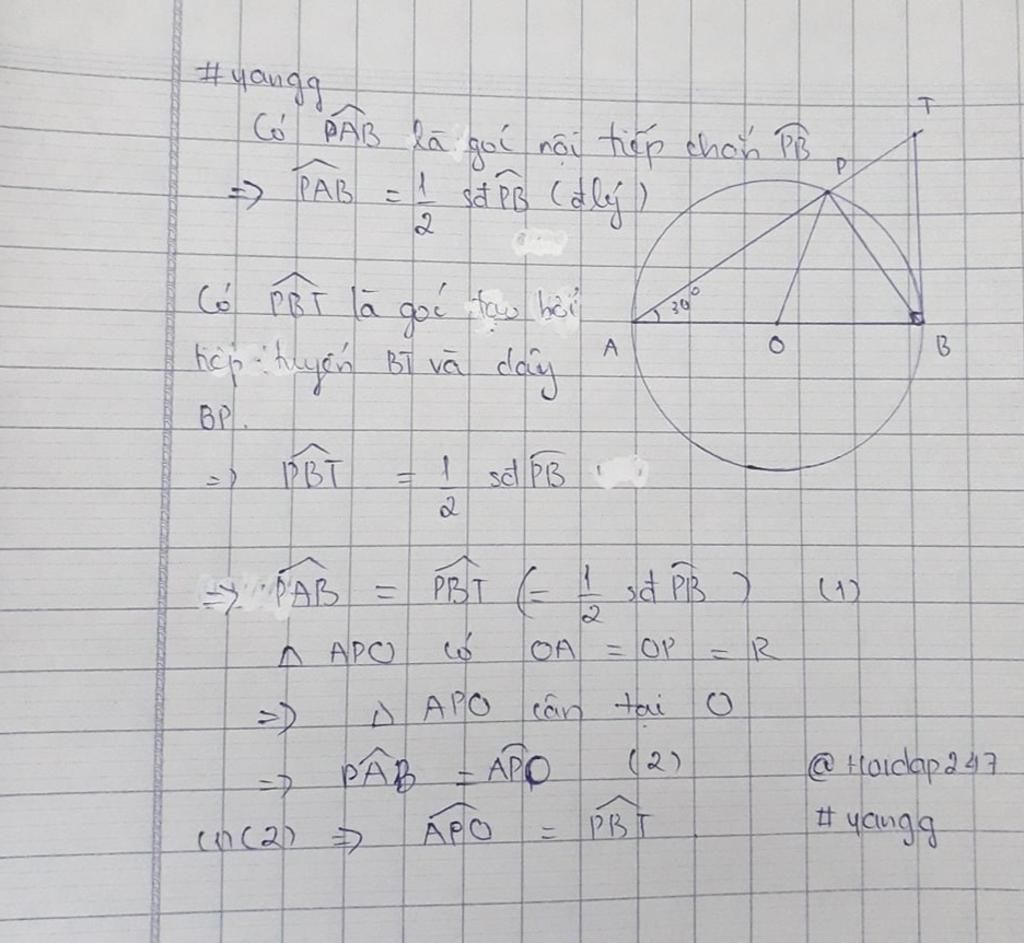 #yangg
Có PAB là goí nội tiếp chắn PB
=> PAB = 1/2 sđ PB (đ lý)
Có PBT là goí tạo bởi
tiếp tuyến BT và dây
BP.
=> PBT = 1/2 sđ PB
=> PAB = PBT (= 1/2 sđ PB) (1)
Δ APO có OA = OP = R
=> Δ APO cân tại O
=> PAB = APO (2)
(1)(2) => APO = PBT
@Hoidap247
#yangg
T
P
30°
A
O
B